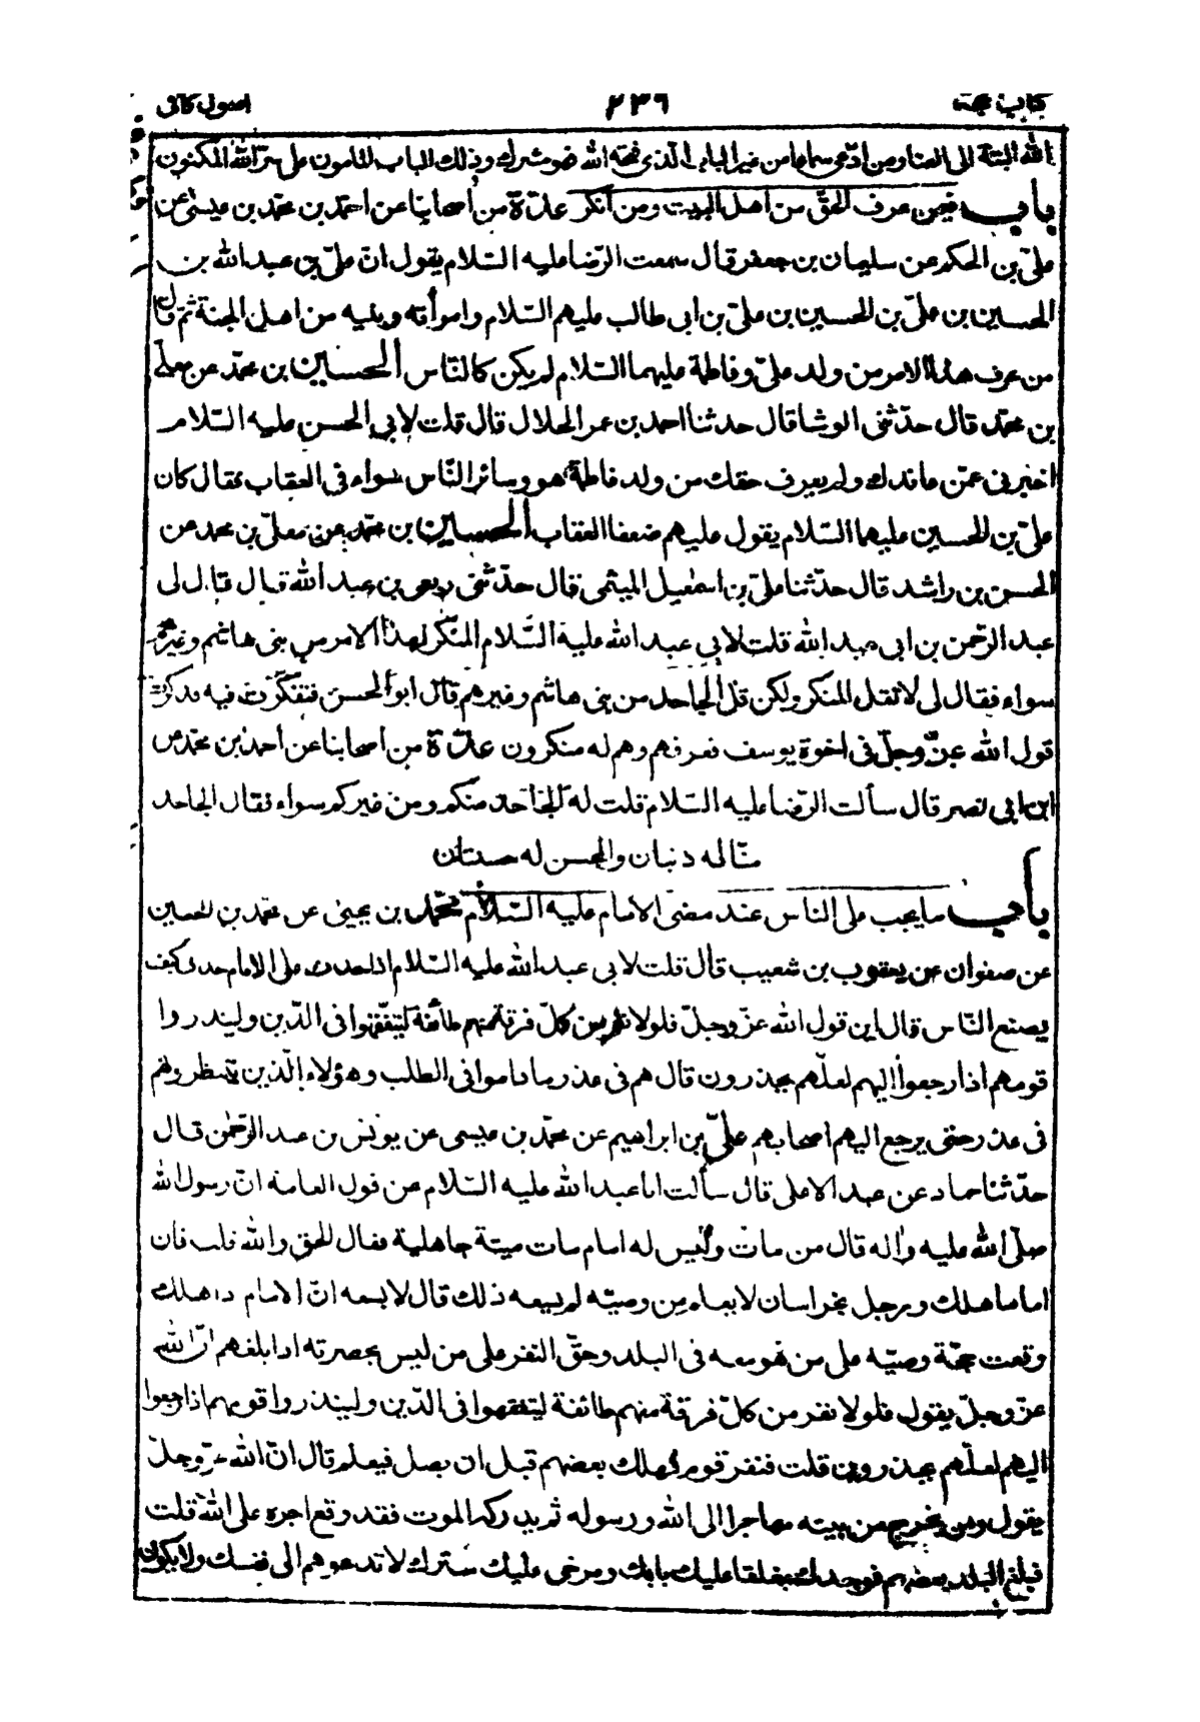 كتاب الحجة ٢٣٦ اصول كافى
الله البتة الى العنا ومن ادّعى سماعا من غير الباب الذى فتحه الله فهو مشرك وذلك الباب المامون على سرّ الله المكنون
باب فيمن عرف الحقّ من اهل البيت ومن انكر عدّة من أصحابنا عن احمد بن محمّد بن عيسى عن
علىّ بن الحكم عن سليمان بن جعفر قال سمعت الرّضا عليه السّلام يقول انّ علىّ بن عبد الله بن
الحسين بن علىّ بن الحسين بن علىّ بن ابى طالب عليهم السّلام وامرأته وبنيه من اهل الجنة ثمّ قال
من عرف هذا الامر من ولد علىّ وفاطمة عليهما السّلام لم يكن كالنّاس الحسين بن محمّد عن معلّى
بن محمّد قال حدّثنى الوشا قال حدثنا احمد بن عمر الحلال قال قلت لابى الحسن عليه السّلام
اخبرنى عمّن عاندك ولم يعرف حقك من ولد فاطمة هو وسائر النّاس سواء فى العقاب فقال كان
علىّ بن الحسين عليهما السّلام يقول عليهم ضعفا العقاب الحسين بن محمّد عن معلّى بن محمد عن
الحسن بن راشد قال حدّثنا علىّ بن اسمعيل الميثمى قال حدّثنى ربعى بن عبد الله قال قال لى
عبد الرّحمن بن ابى عبد الله قلت لابى عبد الله عليه السّلام المنكر لهذا الامر من بنى هاشم وغيرهم
سواء فقال لى لا تقل المنكر ولكن قل الجاحد من بنى هاشم وغيرهم قال ابو الحسن فتفكّرت فيه فذكرت
قول الله عزّ وجلّ فى اخوة يوسف فعرفهم وهم له منكرون عدّة من اصحابنا عن احمد بن محمّد
ابن ابى نصر قال سألت الرّضا عليه السّلام قلت له الجاحد منكم ومن غيركم سواء فقال الجاحد
منّا له ذنبان والمحسن له حسنتان
باب ما يجب على الناس عند مضى الامام عليه السّلام محمّد بن يحيى عن محمّد بن الحسين
عن صفوان عن يعقوب بن شعيب قال قلت لابى عبد الله عليه السّلام اذا حدث على الامام حدث كيف
يصنع النّاس قال اين قول الله عزّ وجلّ فلولا نفر من كلّ فرقة منهم طائفة ليتفقّهوا فى الدّين ولينذروا
قومهم اذا رجعوا اليهم لعلّهم يحذرون قال هم فى عذر ما داموا فى الطلب وهؤلاء الّذين ينتظرونهم
فى عذر حتى يرجع اليهم اصحابهم علىّ بن ابراهيم عن محمّد بن عيسى عن يونس بن عبد الرّحمن قال
حدّثنا حماد عن عبد الاعلى قال سألت ابا عبد الله عليه السّلام عن قول العامة انّ رسول الله
صلّى الله عليه وآله قال من مات وليس له امام مات ميتة جاهلية فقال الحق والله قلت فان
اماما هلك ورجل بخراسان لا يعلم من وصيّه لم يسعه ذلك قال لا يسعه انّ الامام اذا هلك
وقعت حجّة وصيّه على من هو معه فى البلد وحقّ النفر على من ليس بحضرته اذا بلغهم انّ الله
عزّ وجلّ يقول فلولا نفر من كلّ فرقة منهم طائفة ليتفقهوا فى الدّين ولينذروا قومهم اذا رجعوا
اليهم لعلّهم يحذرون قلت فنفر قوم فهلك بعضهم قبل ان يصل فيعلم قال انّ الله عزّ وجلّ
يقول ومن يخرج من بيته مهاجرا الى الله ورسوله ثم يدركه الموت فقد وقع اجره على الله قلت
فبلغ البلد بعضهم فوجدك مغلقا عليك بابك ومرخى عليك سترك لا تدعوهم الى نفسك ولا يكون